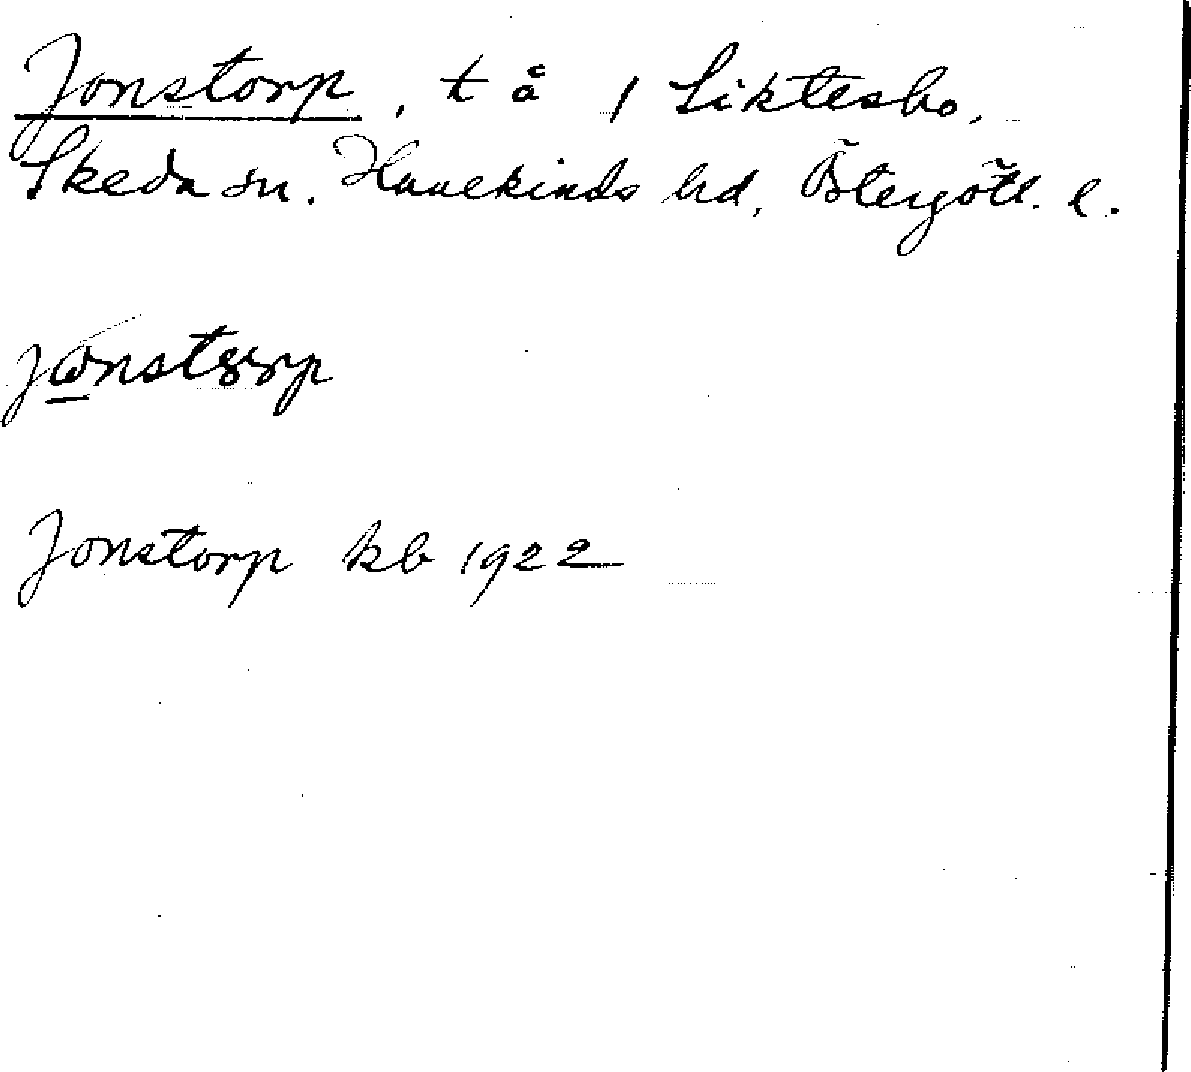 Jonstorp, t å 1 Siktesbo,
Skeda sn. Hanekinds hd, Östergötl. l.
Jonstorp kb 1922